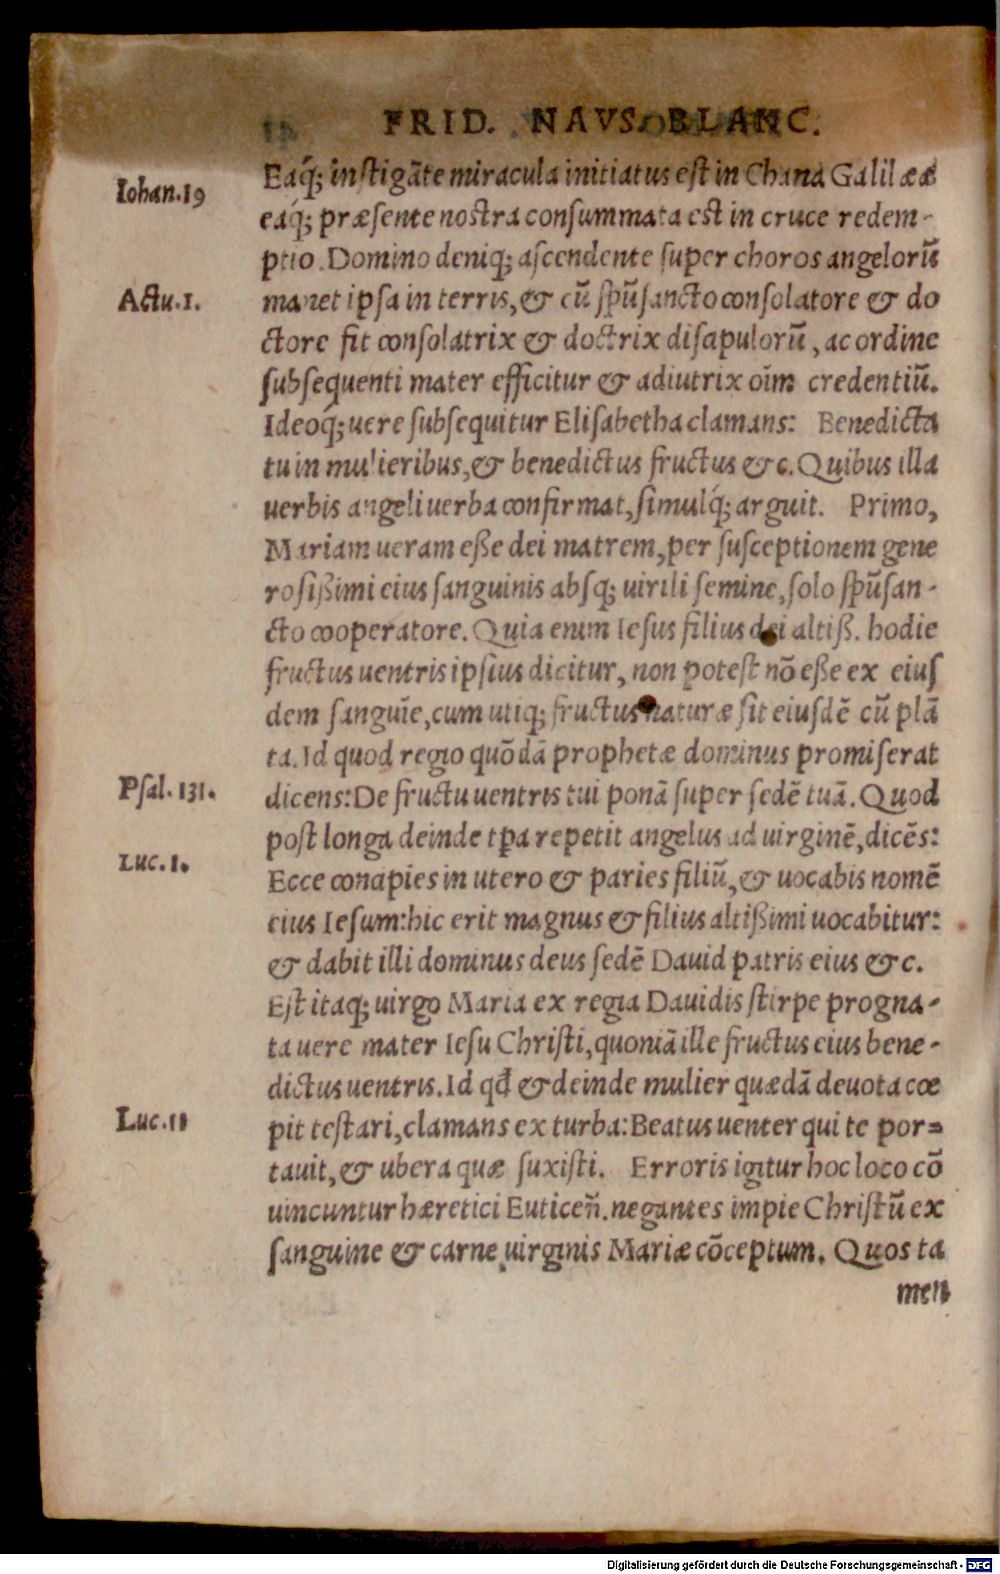 FRID. NAVS. BLANC.
Eaq́; instigãte miracula initiatus est in Chana Galilææ
Iohan.19
eaq́; præsente nostra consummata est in cruce redem-
ptio. Domino deniq; ascendente super choros angelorũ
Actu.1.
manet ipsa in terris, & cũ spũsancto consolatore & do
ctore fit consolatrix & doctrix discipulorũ, ac ordine
subsequenti mater efficitur & adiutrix oĩm credentiũ.
Ideoq́; uere subsequitur Elisabetha clamans: Benedicta
tu in mulieribus, & benedictus fructus &c. Quibus illa
uerbis angeli uerba confirmat, simulq́; arguit. Primo,
Mariam ueram eße dei matrem, per susceptionem gene
rosißimi eius sanguinis absq; uirili semine, solo spũsan-
cto cooperatore. Quia enim Iesus filius dei altiß. hodie
fructus uentris ipsius dicitur, non potest nõ eße ex eius
dem sanguĩe, cum utiq; fructus naturæ sit eiusdẽ cũ plã
ta. Id quod regio quõdã prophetæ dominus promiserat
Psal.131.
dicens: De fructu uentris tui ponã super sedẽ tuã. Quod
post longa deinde tp̃a repetit angelus ad uirginẽ, dicẽs:
Luc.1.
Ecce concipies in utero & paries filiũ, & uocabis nomẽ
eius Iesum: hic erit magnus & filius altißimi uocabitur:
& dabit illi dominus deus sedẽ Dauid patris eius &c.
Est itaq; uirgo Maria ex regia Dauidis stirpe progna-
ta uere mater Iesu Christi, quoniã ille fructus eius bene-
dictus uentris. Id qđ & deinde mulier quædã deuota cœ
Luc.11
pit testari, clamans ex turba: Beatus uenter qui te por=
tauit, & ubera quæ suxisti. Erroris igitur hoc loco cõ
uincuntur hæretici Euticeñ. negantes impie Christũ ex
sanguine & carne uirginis Mariæ cõceptum. Quos ta
men
Digitalisierung gefördert durch die Deutsche Forschungsgemeinschaft - DFG